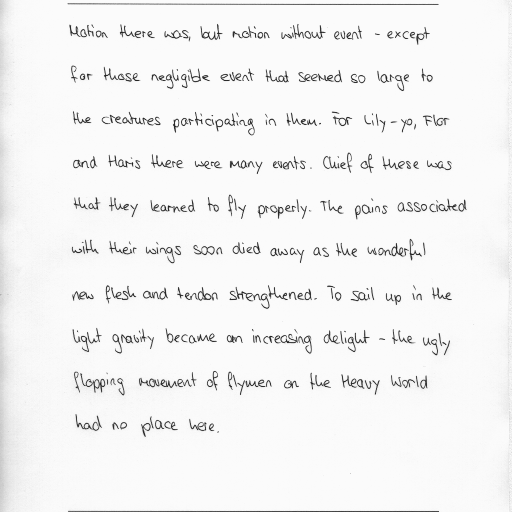 Motion there was, but motion without event - except
for those negligible event that seemed so large to
the creatures participating in them. For Lily-yo, Flor
and Haris there were many events. Chief of these was
that they learned to fly properly. The pains associated
with their wings soon died away as the wonderful
new flesh and tendon strengthened. To sail up in the
light gravity became an increasing delight - the ugly
flopping movement of flymen on the Heavy World
had no place here.